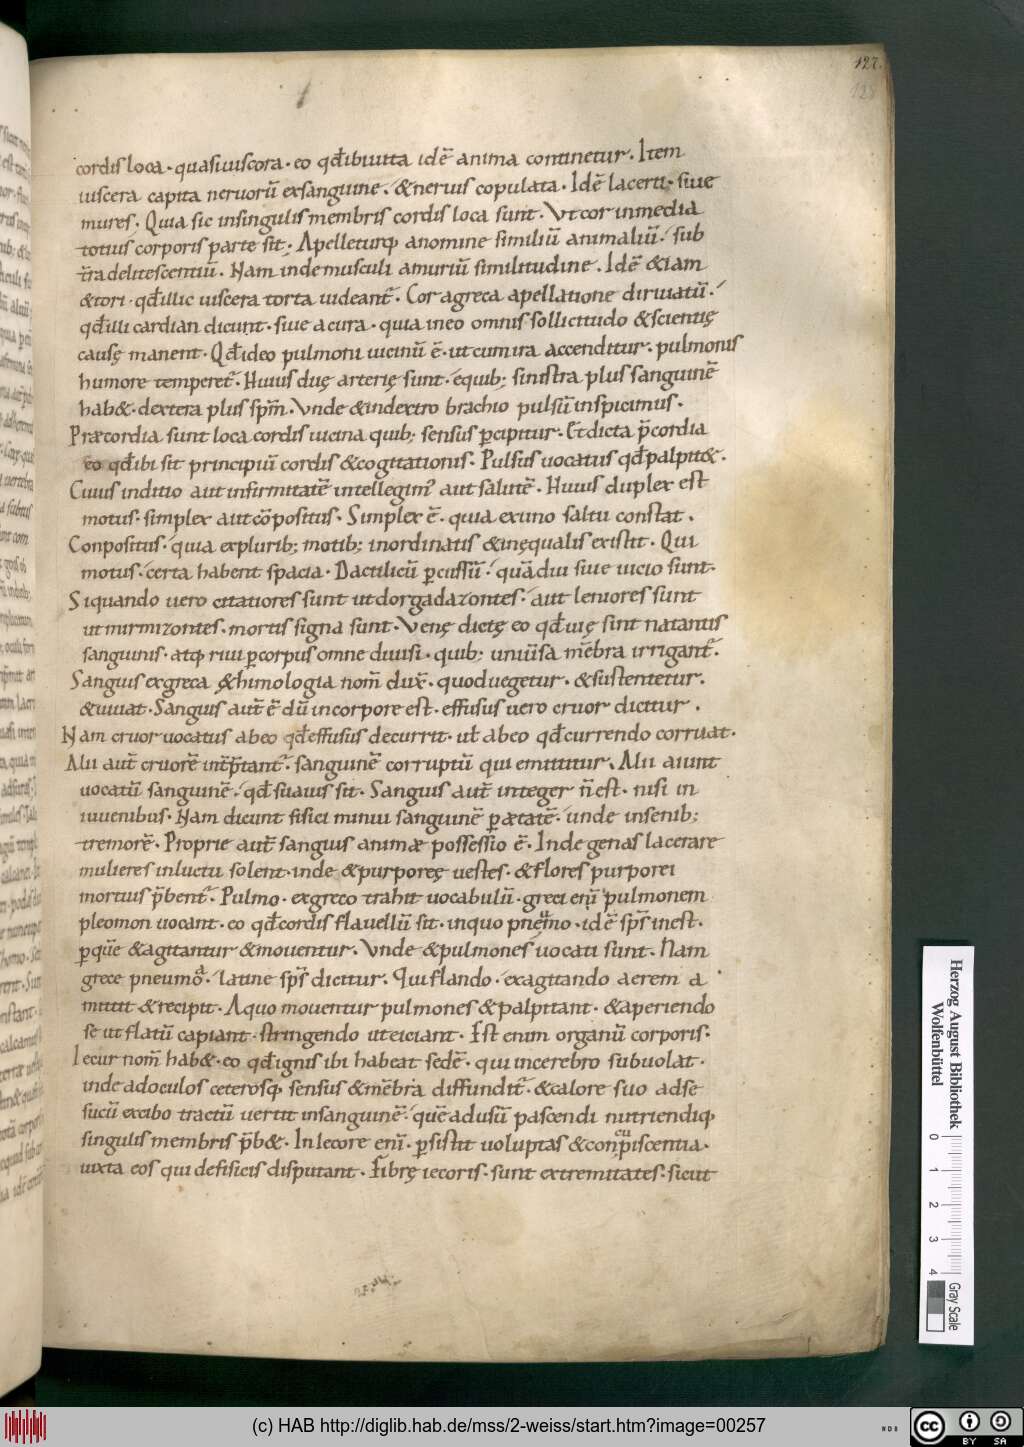 127.
128
cordis loca · quasi uiscora · eo qđ ibi uita idē anima continetur · Item
uiscera capita neruorū exsanguine · & neruis copulata · Idē lacerti · siue
mures · Quia sic in singulis membris cordis loca sunt · Vt cor in media
totius corporis parte sit; Apelleturq; a nomine similiū animaliū · sub
t̄ra delitescentiū · Nam inde musculi a muriū similitudine · Idē & iam
& tori · qđ illic uiscera torta uideant᷑ · Cor a greca apellatione diriuatū ·
qđ illi cardian dicunt · siue a cura · quia in eo omnis sollicitudo & scientię
causę manent · Qđ ideo pulmoni uicinū ē · ut cum ira accenditur · pulmonis
humore temperet᷑ · Huius duę arterię sunt · equib; sinistra plus sanguinē
hab& · dextera plus sp̄m · Vnde & in dextro brachio pulsū inspicimus ·
Præcordia sunt loca cordis uicina quib; sensus p̱cipitur · Et dicta p̄cordia
eo qđ ibi sit principiū cordis & cogitationis · Pulsus uocatus qđ palpit& ·
Cuius inditio aut infirmitatē intellegim᷒ aut salutē · Huius duplex est
motus · simplex aut cōpositus · Simplex ē · quia ex uno saltu constat ·
Conpositus · quia ex plurib; motib; inordinatis & inęqualis existit · Qui
motus · certa habent spacia · Dactilicū p̱cussū · quādiu siue uicio sunt ·
Siquando uero citatiores sunt ut dorgadazontes · aut leniores sunt
ut mirmizontes · mortis signa sunt · Venę dictę eo qđ uię sint natantis
sanguinis · atq; riui p̱ corpus omne diuisi · quib; uniūsa mēbra irrigant᷑ ·
Sanguis ex greca &himologia nom̄ dux̄ · quod uegetur · & sustentetur ·
& uiuat · Sanguis aut̄ ē dū in corpore est · effusus uero cruor dicitur ·
Nam cruor uocatus ab eo qđ effusus decurrit · ut̄ ab eo qđ currendo corruat ·
Alii aut̄ cruorē int̄p̄tant᷑ · sanguinē corruptū qui emittitur · Alii aiunt
uocatū sanguinē · qđ suauis sit · Sanguis aut̄ integer n̄ est · nisi in
iuuenibus · Nam dicunt fisici minui sanguinē p̱ ætatē · unde in senib;
tremorē · Proprie aut̄ sanguis animæ possessio ē · Inde genas lacerare
mulieres in luctu solent · inde & purporeę uestes · & flores purporei
mortuis p̄bent᷑ · Pulmo · ex greco trahit uocabulū · greci enī pulmonem
pleomon uocant · eo qđ cordis flauellū sit · in quo pneumo · idē sp̄s inest ·
p̱ quē & agitantur & mouentur · Vnde & pulmones uocati sunt · Nam
grece pneumo᷎ · latine sp̄s dicitur · Qui flando · exagitando aerem a
mittit & recipit · A quo mouentur pulmones & palpitant · & aperiendo
se ut flatū capiant · stringendo ut eiciant · Est enim organū corporis ·
Iecur nom̄ hab& · eo qđ ignis ibi habeat sedē · qui in cerebro subuolat ·
inde ad oculos ceterosq; sensus & mēbra diffundit᷑ · & calore suo ad se
sucū ex cibo tractū uertit in sanguinē · quē ad usū pascendi nutriendiq;
singulis membris p̄b& · In lecore enī · p̱sistit uoluptas & conp̱iscentia ·
iuxta eos qui de fisicis disputant · Fibrę iecoris · sunt extremitates · sicut
Herzog August Bibliothek
Wolfenbüttel
0 1 2 3 4
Gray Scale
(c) HAB http://diglib.hab.de/mss/2-weiss/start.htm?image=00257
cc BY SA